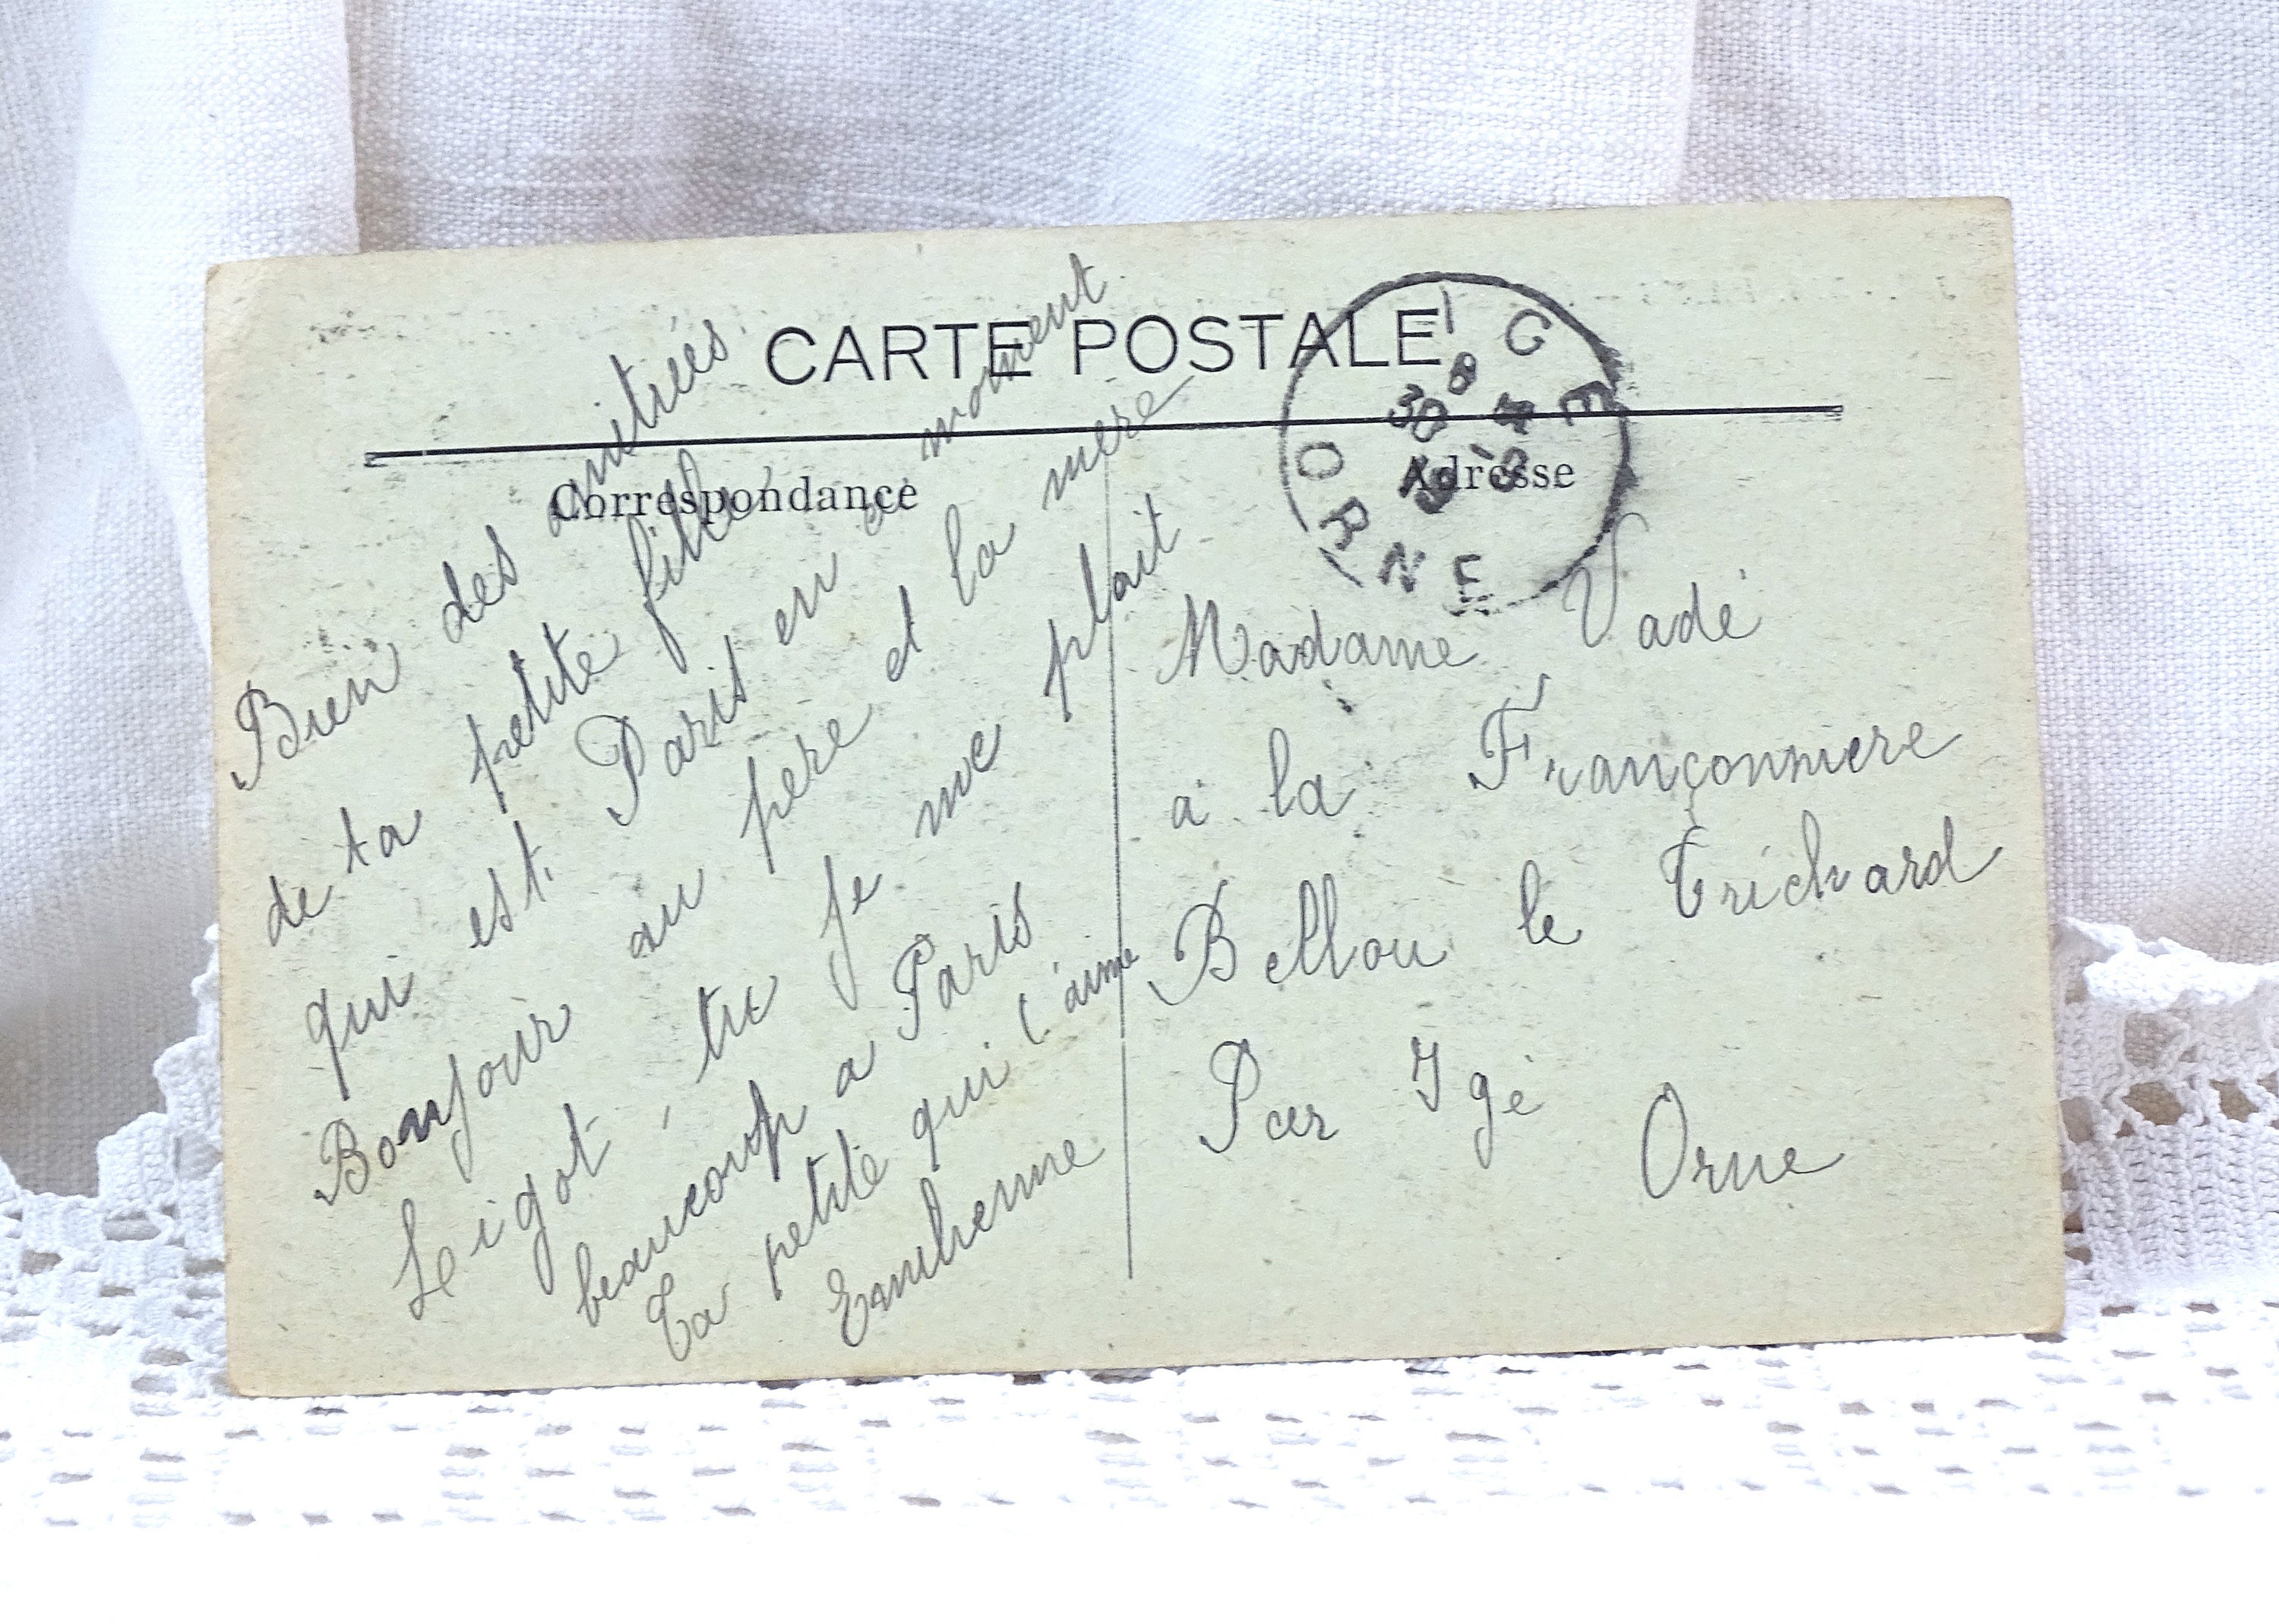 CARTE POSTALE
Correspondance
Adresse
IGE
ORNE
8
30
Bien des amitiées
de ta petite fille
qui est Paris en ce moment
Bonjour au père et la mère
Leigot, tu je me plait
beaucoup a Paris
Ta petite qui t'aime
Madame Vadé
a la Françonniere
Bellou le Trichard
Par Igé
Orne